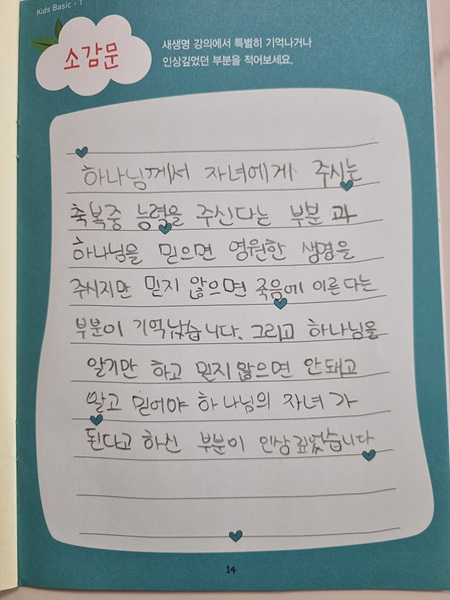 Kids Basic - 1
소감문
새생명 강의에서 특별히 기억나거나
인상깊었던 부분을 적어보세요.
하나님께서 자녀에게 주시는
축복중 능력을 주신다는 부분 과
하나님을 믿으면 영원한 생명을
주시지만 믿지 않으면 죽음에 이른다는
부분이 기억났습니다. 그리고 하나님을
알기만 하고 믿지않으면 안돼고
알고 믿어야 하나님의 자녀 가
된다고 하신 부분이 인상깊었습니다
14